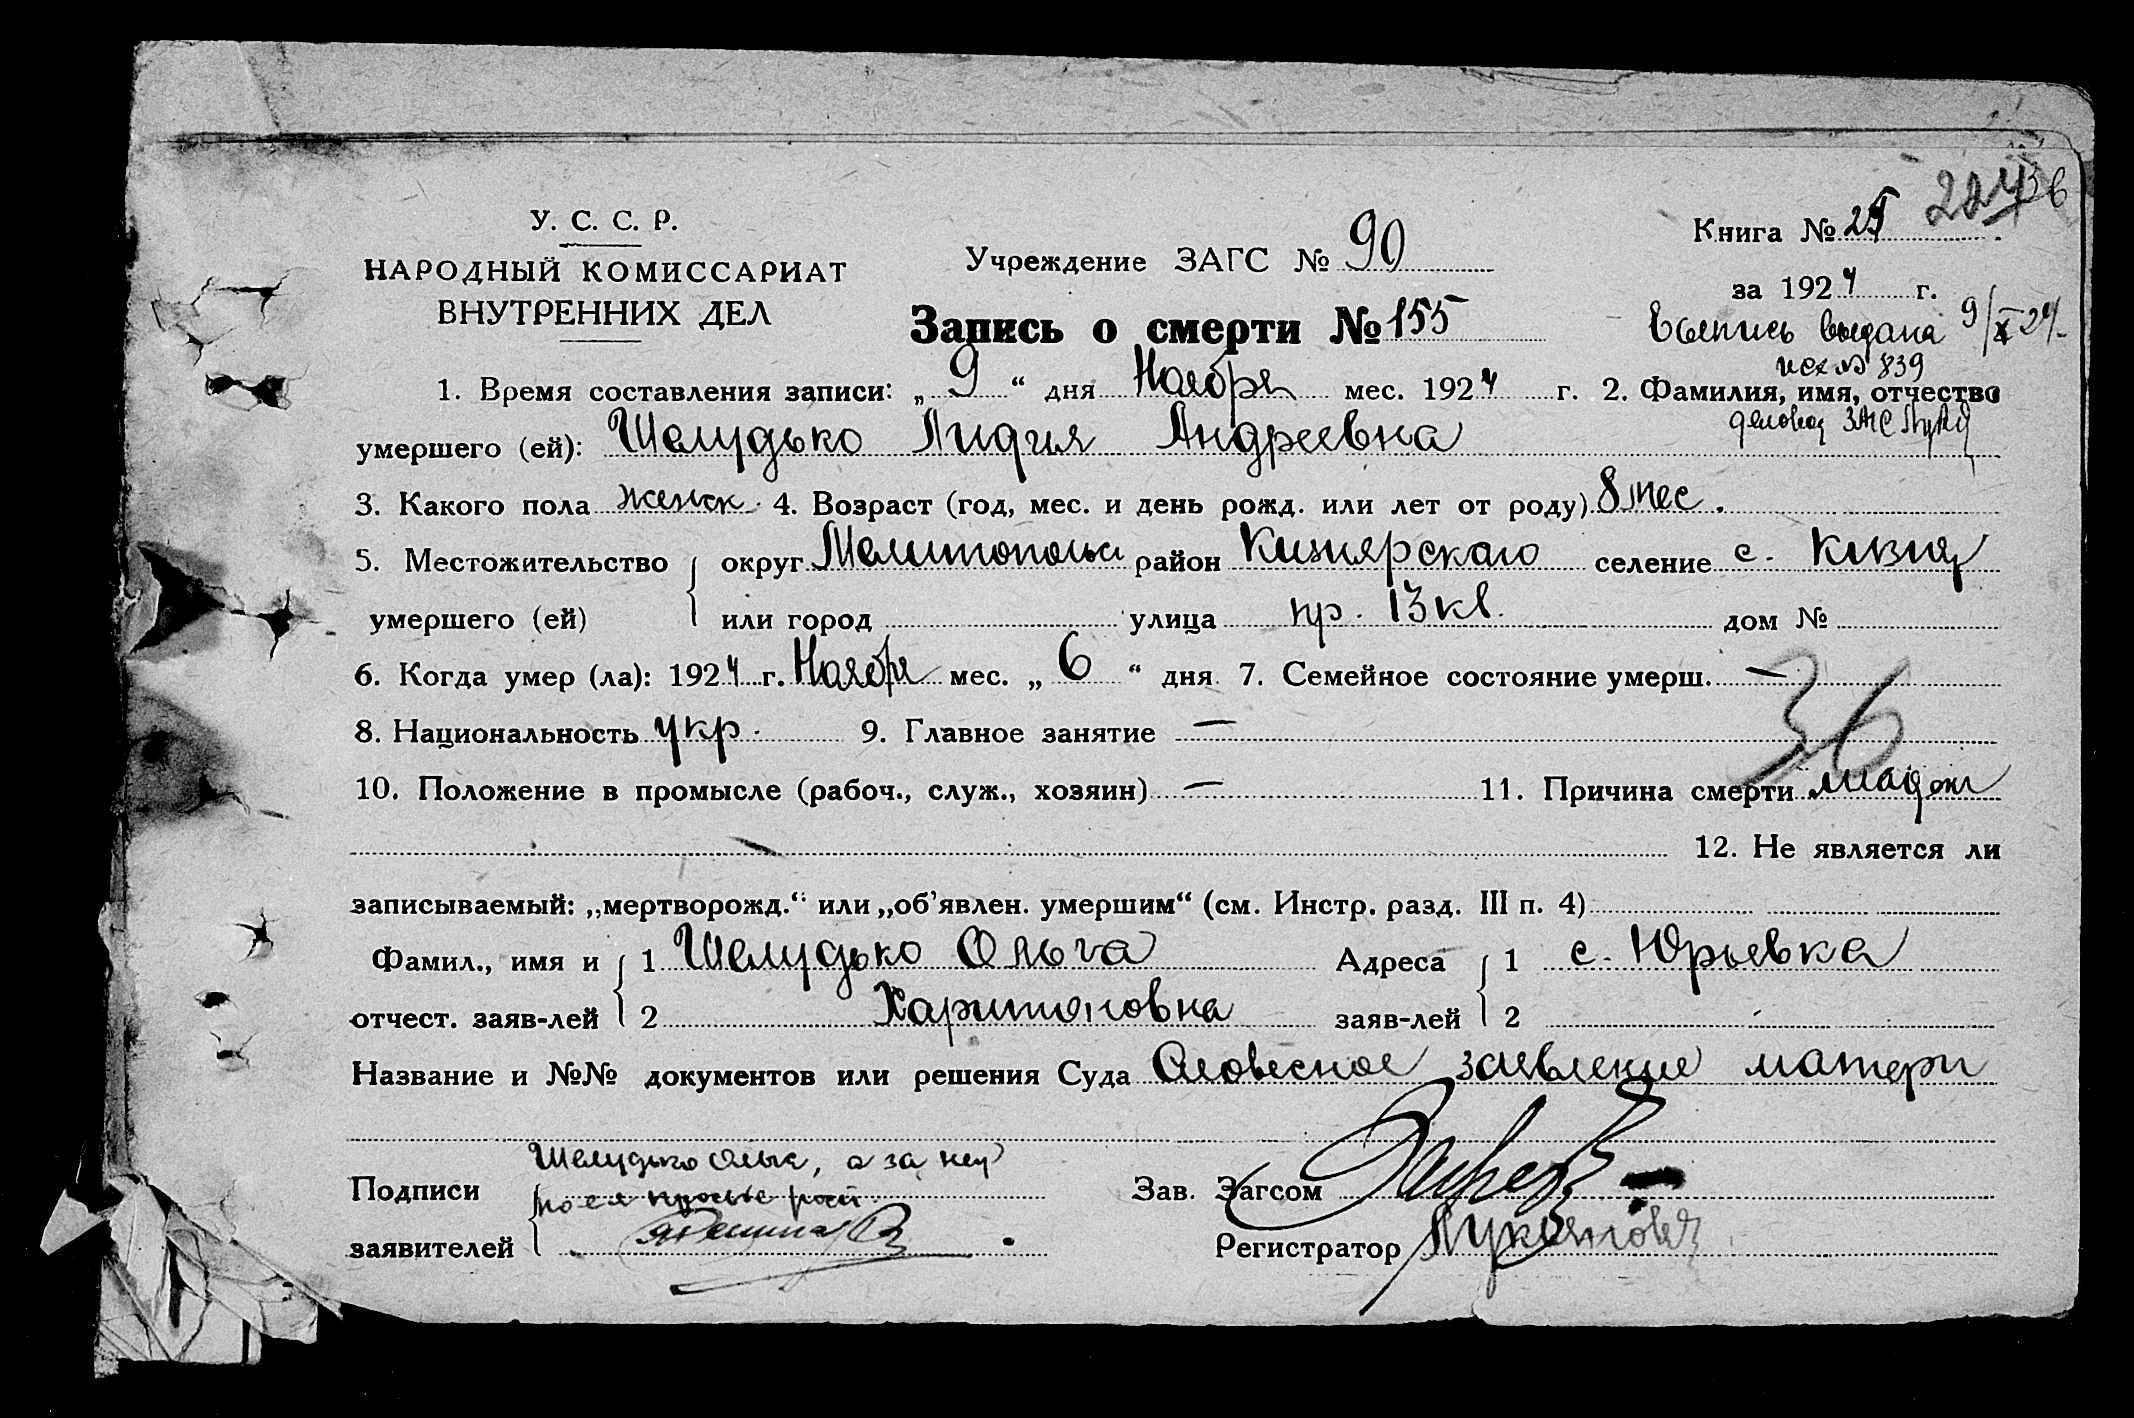 У. С. С. Р.
НАРОДНЫЙ КОМИССАРИАТ
ВНУТРЕННИХ ДЕЛ
Учреждение ЗАГС № 90
Книга №
за 1924 г.
Запись о смерти № 155
выпись выдана 9/XI 24
исх № 839
1. Время составления записи: „ 9 “ дня Ноября мес. 1924 г. 2. Фамилия, имя, отчество
умершего (ей): Шелудько Лидия Андреевна
3. Какого пола женск. 4. Возраст (год, мес. и день рожд. или лет от роду) 8 мес.
5. Местожительство округ Мелитопольс район Кизиярскаго селение с. Кизияр
умершего (ей) или город улица пр. 13 кв. дом №
6. Когда умер (ла): 1924 г. Ноября мес. „ 6 “ дня 7. Семейное состояние умерш. —
36
8. Национальность укр. 9. Главное занятие —
10. Положение в промысле (рабоч., служ., хозяин) — 11. Причина смерти
12. Не является ли
записываемый: „мертворожд.“ или „об’явлен. умершим“ (см. Инстр. разд. III п. 4)
Фамил., имя и 1 Шелудько Ольга Адреса 1 с. Юрьевка
отчест. заяв-лей 2 Харитоновна заяв-лей 2
Название и №№ документов или решения Суда Словесное заявление матери
Шелудько Ольга, а за нея
Подписи по ея просьбе Зав. Загсом
заявителей Регистратор Лукьянова